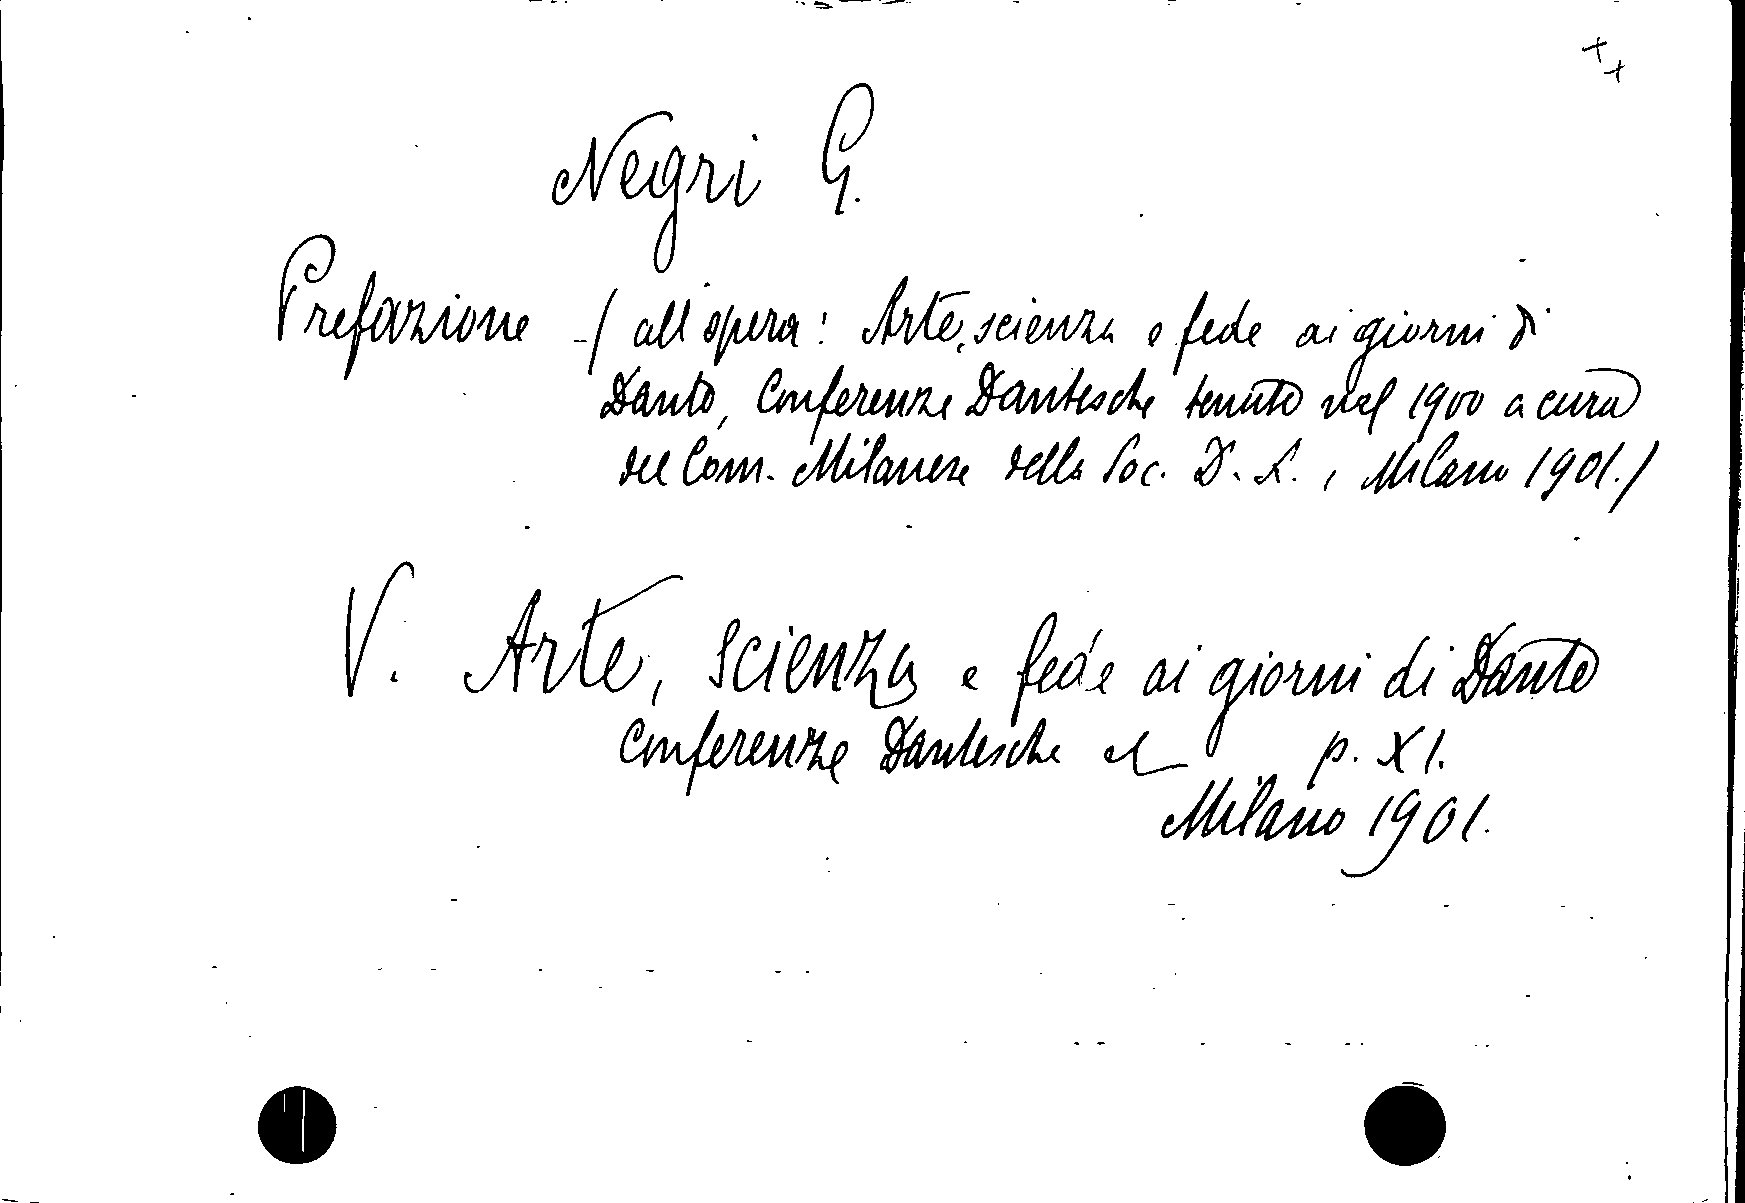 Negri G.
Prefazione -/ all'opera: Arte, scienza e fede ai giorni di
Dante, Conferenze Dantesche tenute nel 1900 a cura
del Com. Milanese della Soc. D. I., Milano 1901./
V. Arte, scienza e fede ai giorni di Dante
Conferenze Dantesche p. XI.
Milano 1901.